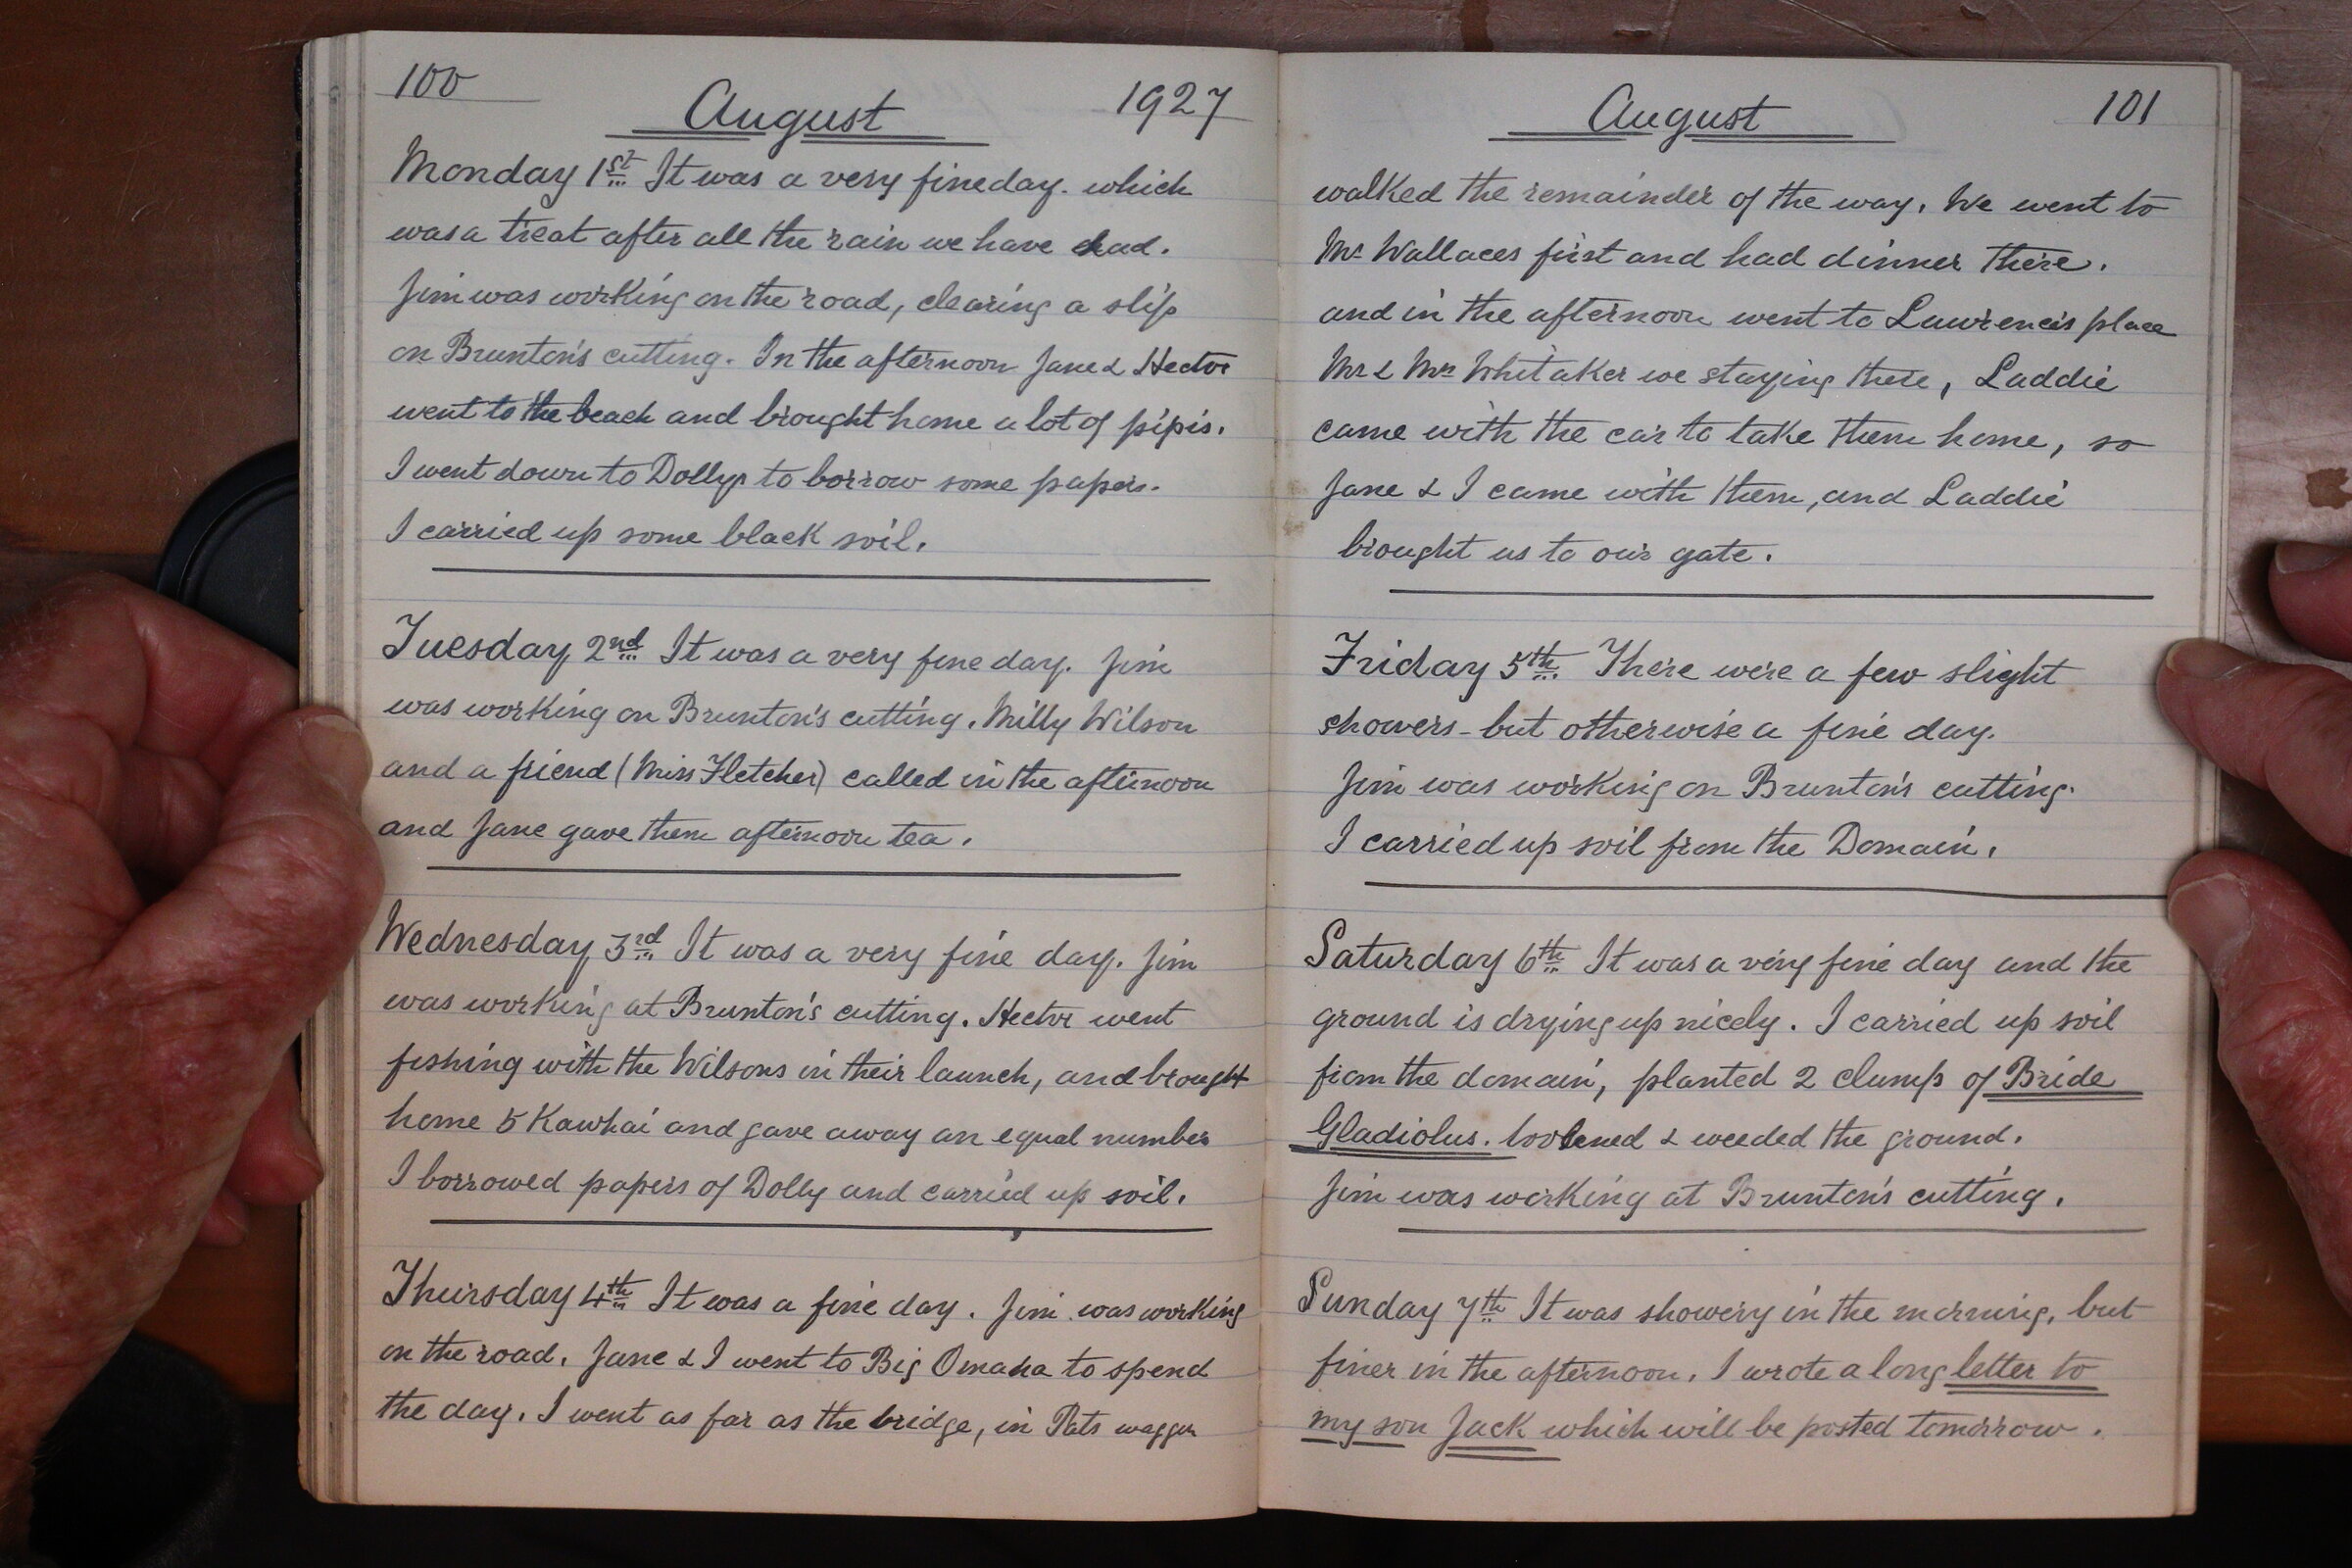 100
August
1927
Monday 1st It was a very fine day. which
was a treat after all the rain we have had.
Jim was working on the road, clearing a slip
on Brunton's cutting. In the afternoon Jane & Hector
went to the beach and brought home a lot of pipis.
I went down to Dollys to borrow some papers.
I carried up some black soil.
Tuesday 2nd It was a very fine day. Jim
was working on Brunton's cutting. Milly Wilson
and a friend (Miss Fletcher) called in the afternoon
and Jane gave them afternoon tea.
Wednesday 3rd It was a very fine day. Jim
was working at Brunton's cutting. Hector went
fishing with the Wilsons in their launch, and brought
home 5 Kawhai and gave away an equal number
I borrowed papers of Dolly and carried up soil.
Thursday 4th It was a fine day. Jim was working
on the road. Jane & I went to Big Omaha to spend
the day. I went as far as the bridge, in Pats waggon
August
101
walked the remainder of the way. We went to
Mr Wallaces first and had dinner there.
and in the afternoon went to Lawrence's place
Mr & Mrs Whitaker we staying there, Laddie
came with the car to take them home, so
Jane & I came with them, and Laddie
brought us to our gate.
Friday 5th There were a few slight
showers - but otherwise a fine day.
Jim was working on Brunton's cutting.
I carried up soil from the Domain.
Saturday 6th It was a very fine day and the
ground is drying up nicely. I carried up soil
from the domain, planted 2 clumps of Bride
Gladiolus. loosened & weeded the ground.
Jim was working at Brunton's cutting.
Sunday 7th It was showery in the morning, but
finer in the afternoon. I wrote a long letter to
my son Jack which will be posted tomorrow.